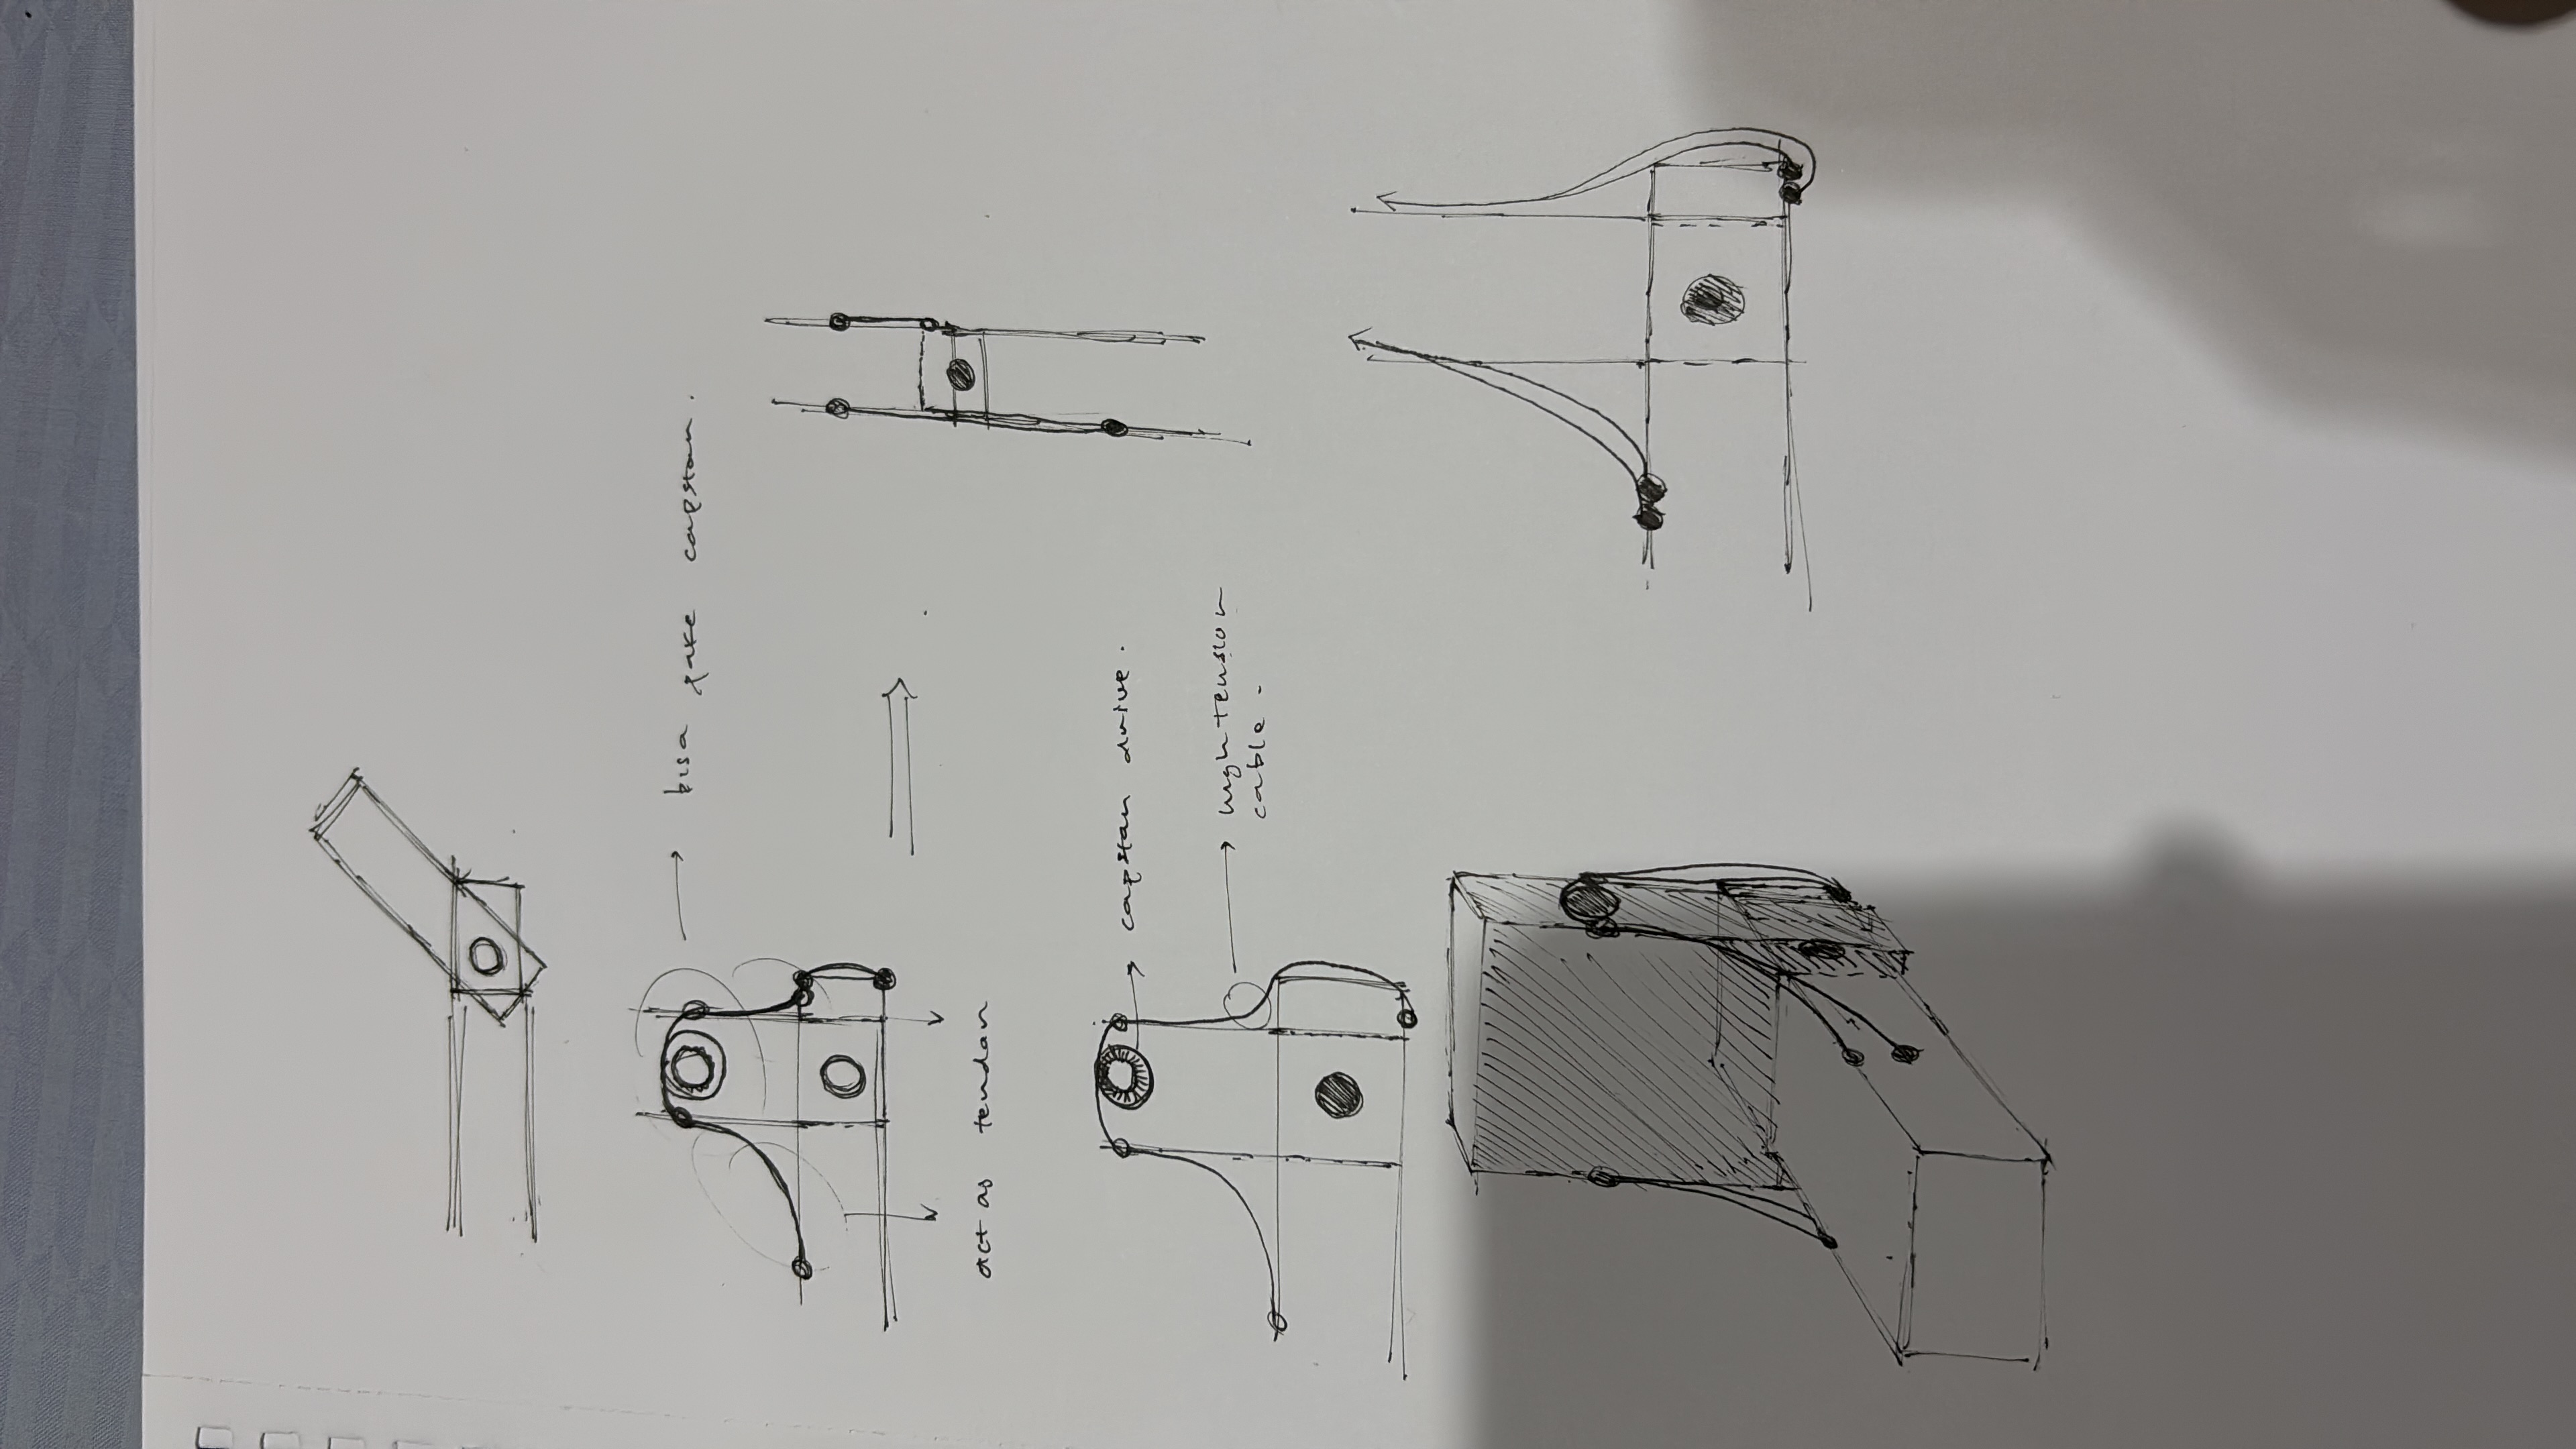 bisa pake capstan.
act as tendan
capstan drive.
high tension
cable.